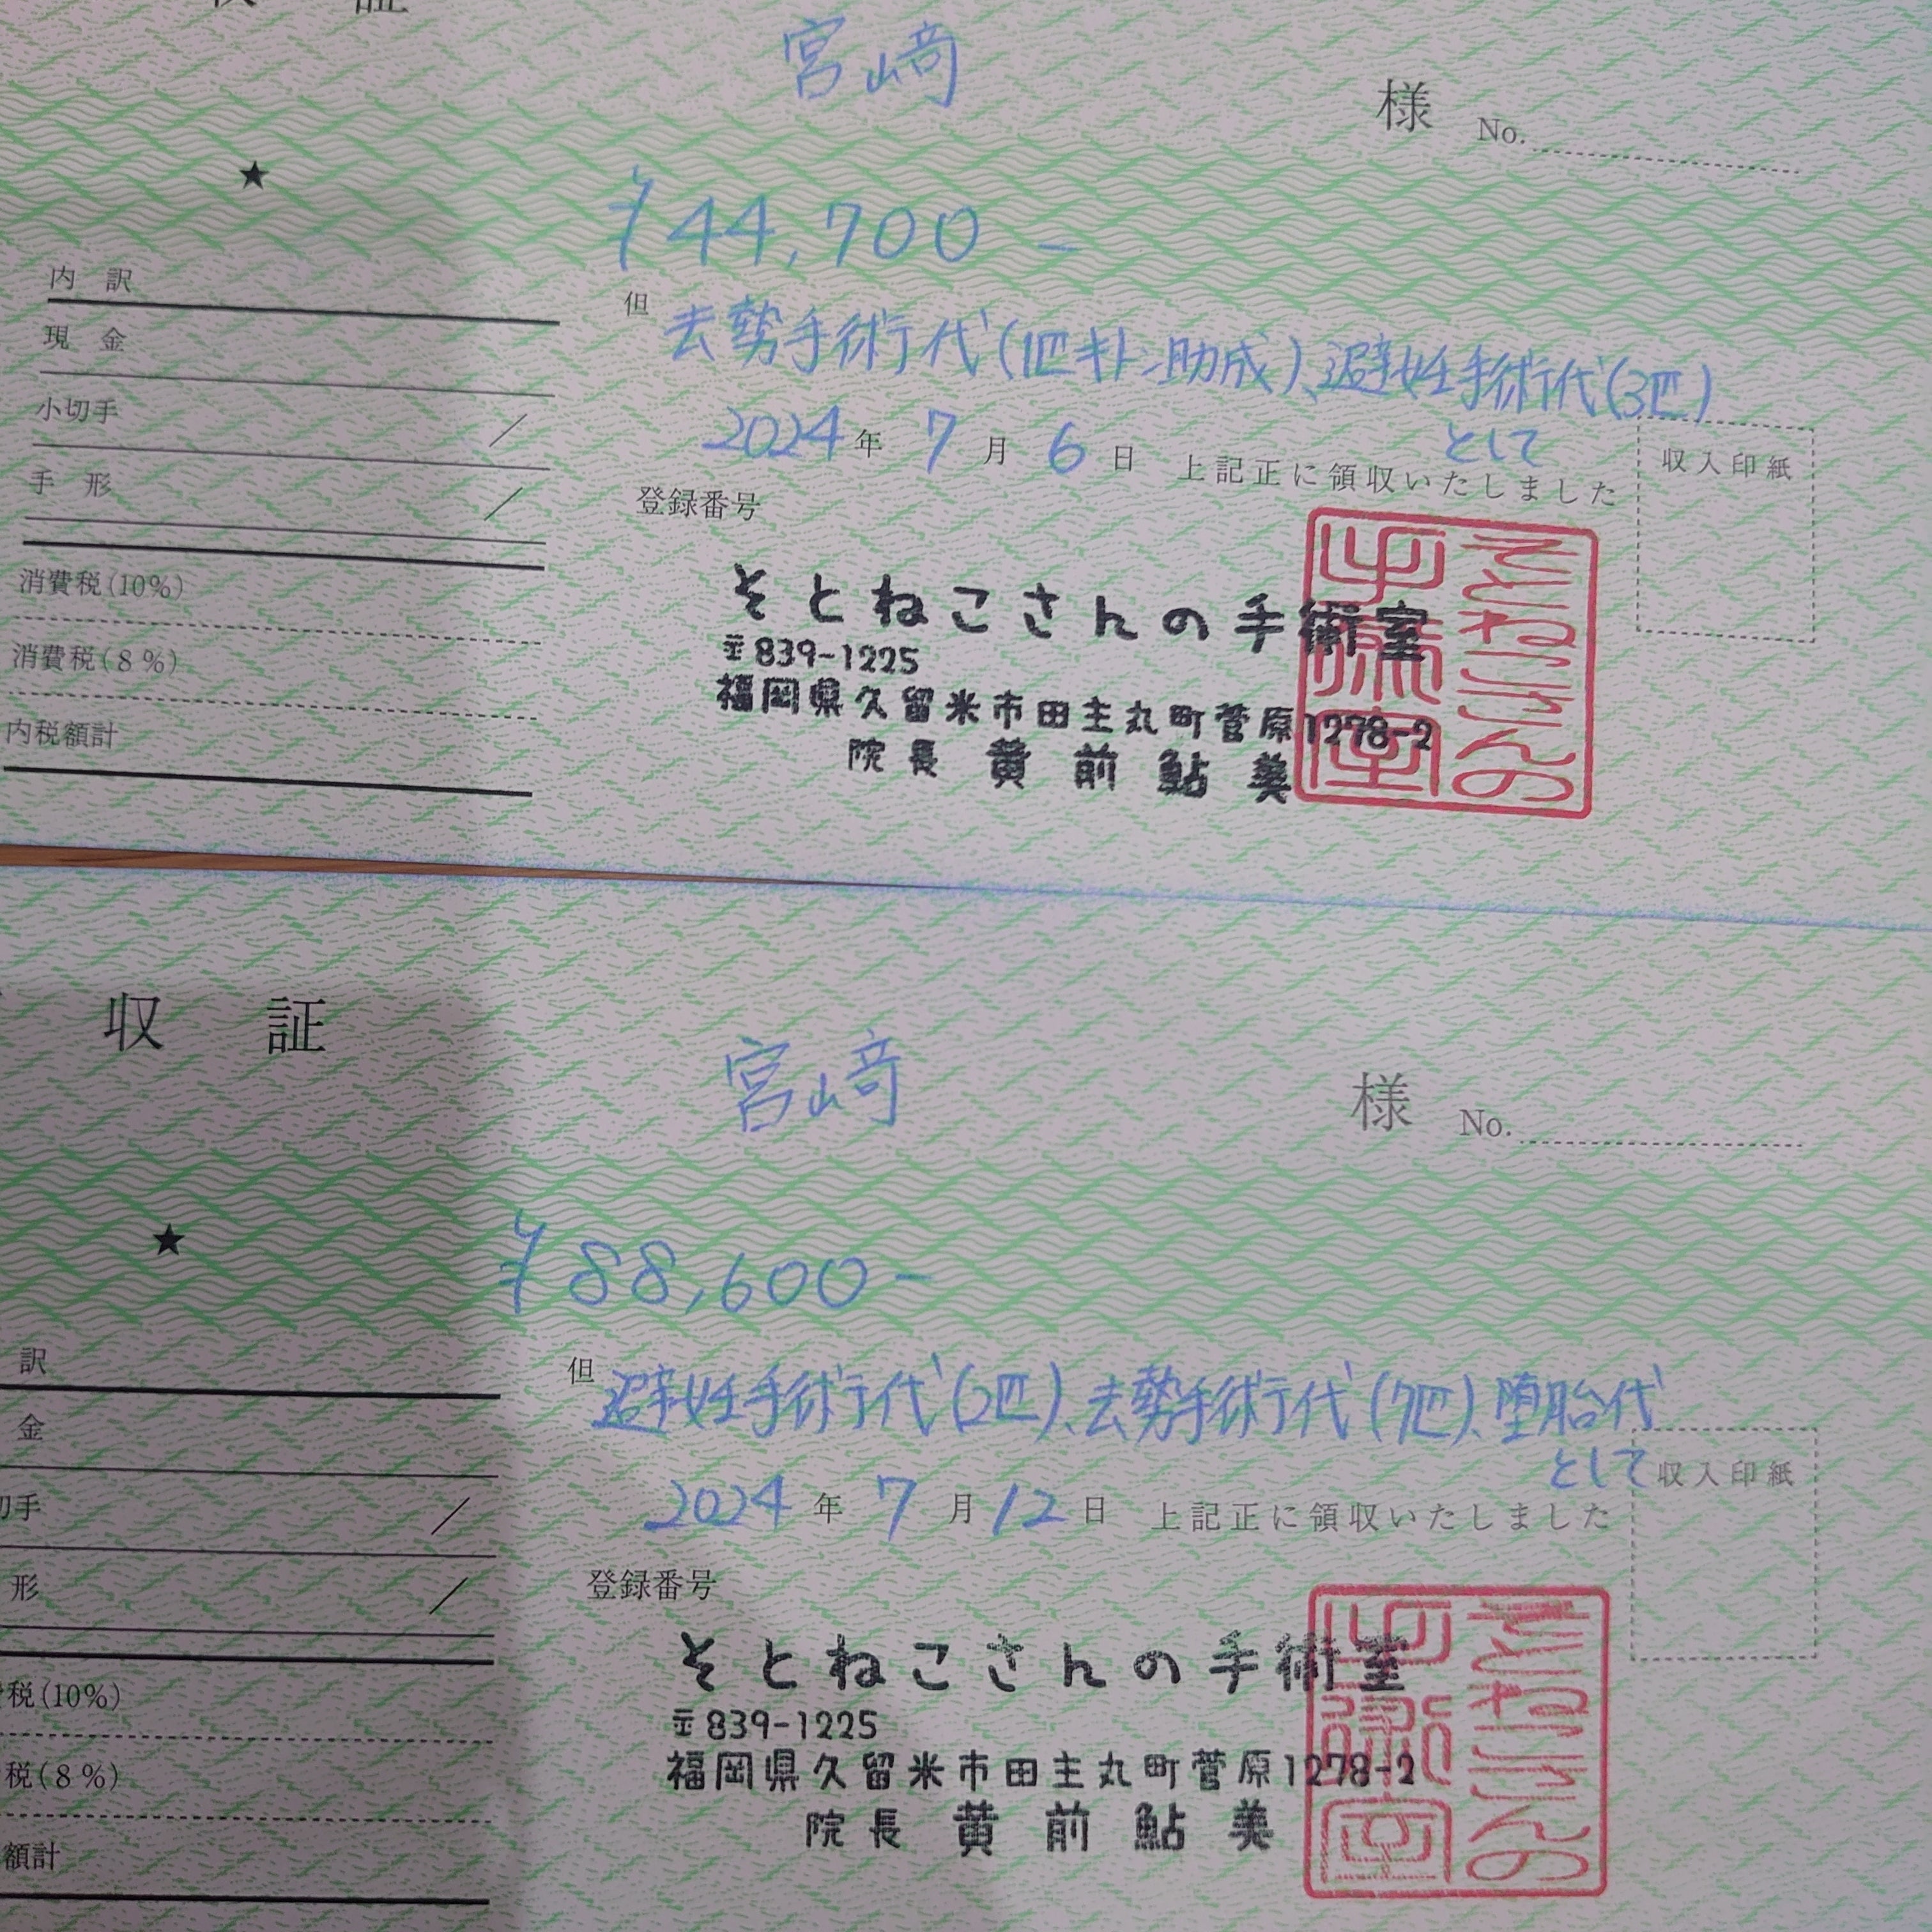 収 証
宮﨑 様 No.
★
¥44,700-
内 訳
現 金
小切手
手 形
消費税(10%)
消費税(8%)
内税額計
但 去勢手術代(1匹キトン助成)、避妊手術代(3匹)
として
2024年 7月 6日 上記正に領収いたしました
収入印紙
登録番号
そとねこさんの手術室
〒839-1225
福岡県久留米市田主丸町菅原1278-2
院長 黄前鮎美
そとねこさんの手術室
収 証
宮﨑 様 No.
★
¥88,600-
訳
金
切手
形
税(10%)
税(8%)
額計
但 避妊手術代(2匹)、去勢手術代(7匹)、堕胎代
として
2024年 7月 12日 上記正に領収いたしました
収入印紙
登録番号
そとねこさんの手術室
〒839-1225
福岡県久留米市田主丸町菅原1278-2
院長 黄前鮎美
そとねこさんの手術室